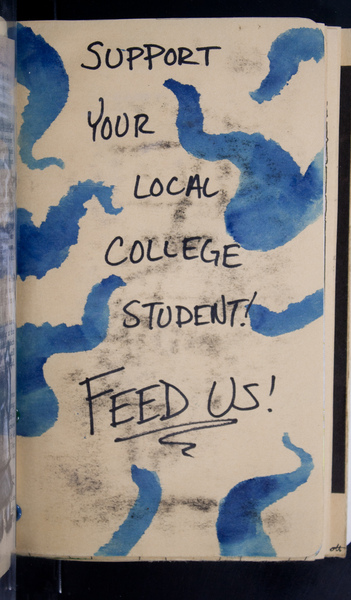 SUPPORT
YOUR
LOCAL
COLLEGE
STUDENT!
FEED US!